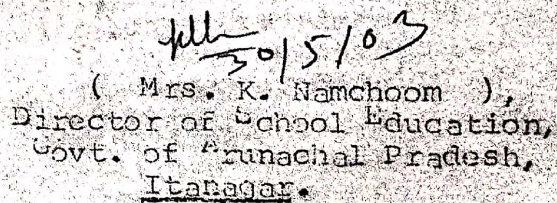 30/5/03
( Mrs. K. Namchoom ),
Director of School Education,
Govt. of Arunachal Pradesh,
Itanagar.